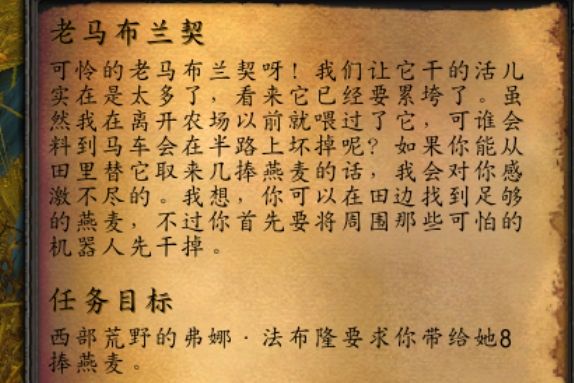 老马布兰契
可怜的老马布兰契呀！我们让它干的活儿
实在是太多了，看来它已经要累垮了。虽
然我在离开农场以前就喂过了它，可谁会
料到马车会在半路上坏掉呢？如果你能从
田里替它取来几捧燕麦的话，我会对你感
激不尽的。我想，你可以在田边找到足够
的燕麦，不过你首先要将周围那些可怕的
机器人先干掉。
任务目标
西部荒野的弗娜·法布隆要求你带给她8
捧燕麦。